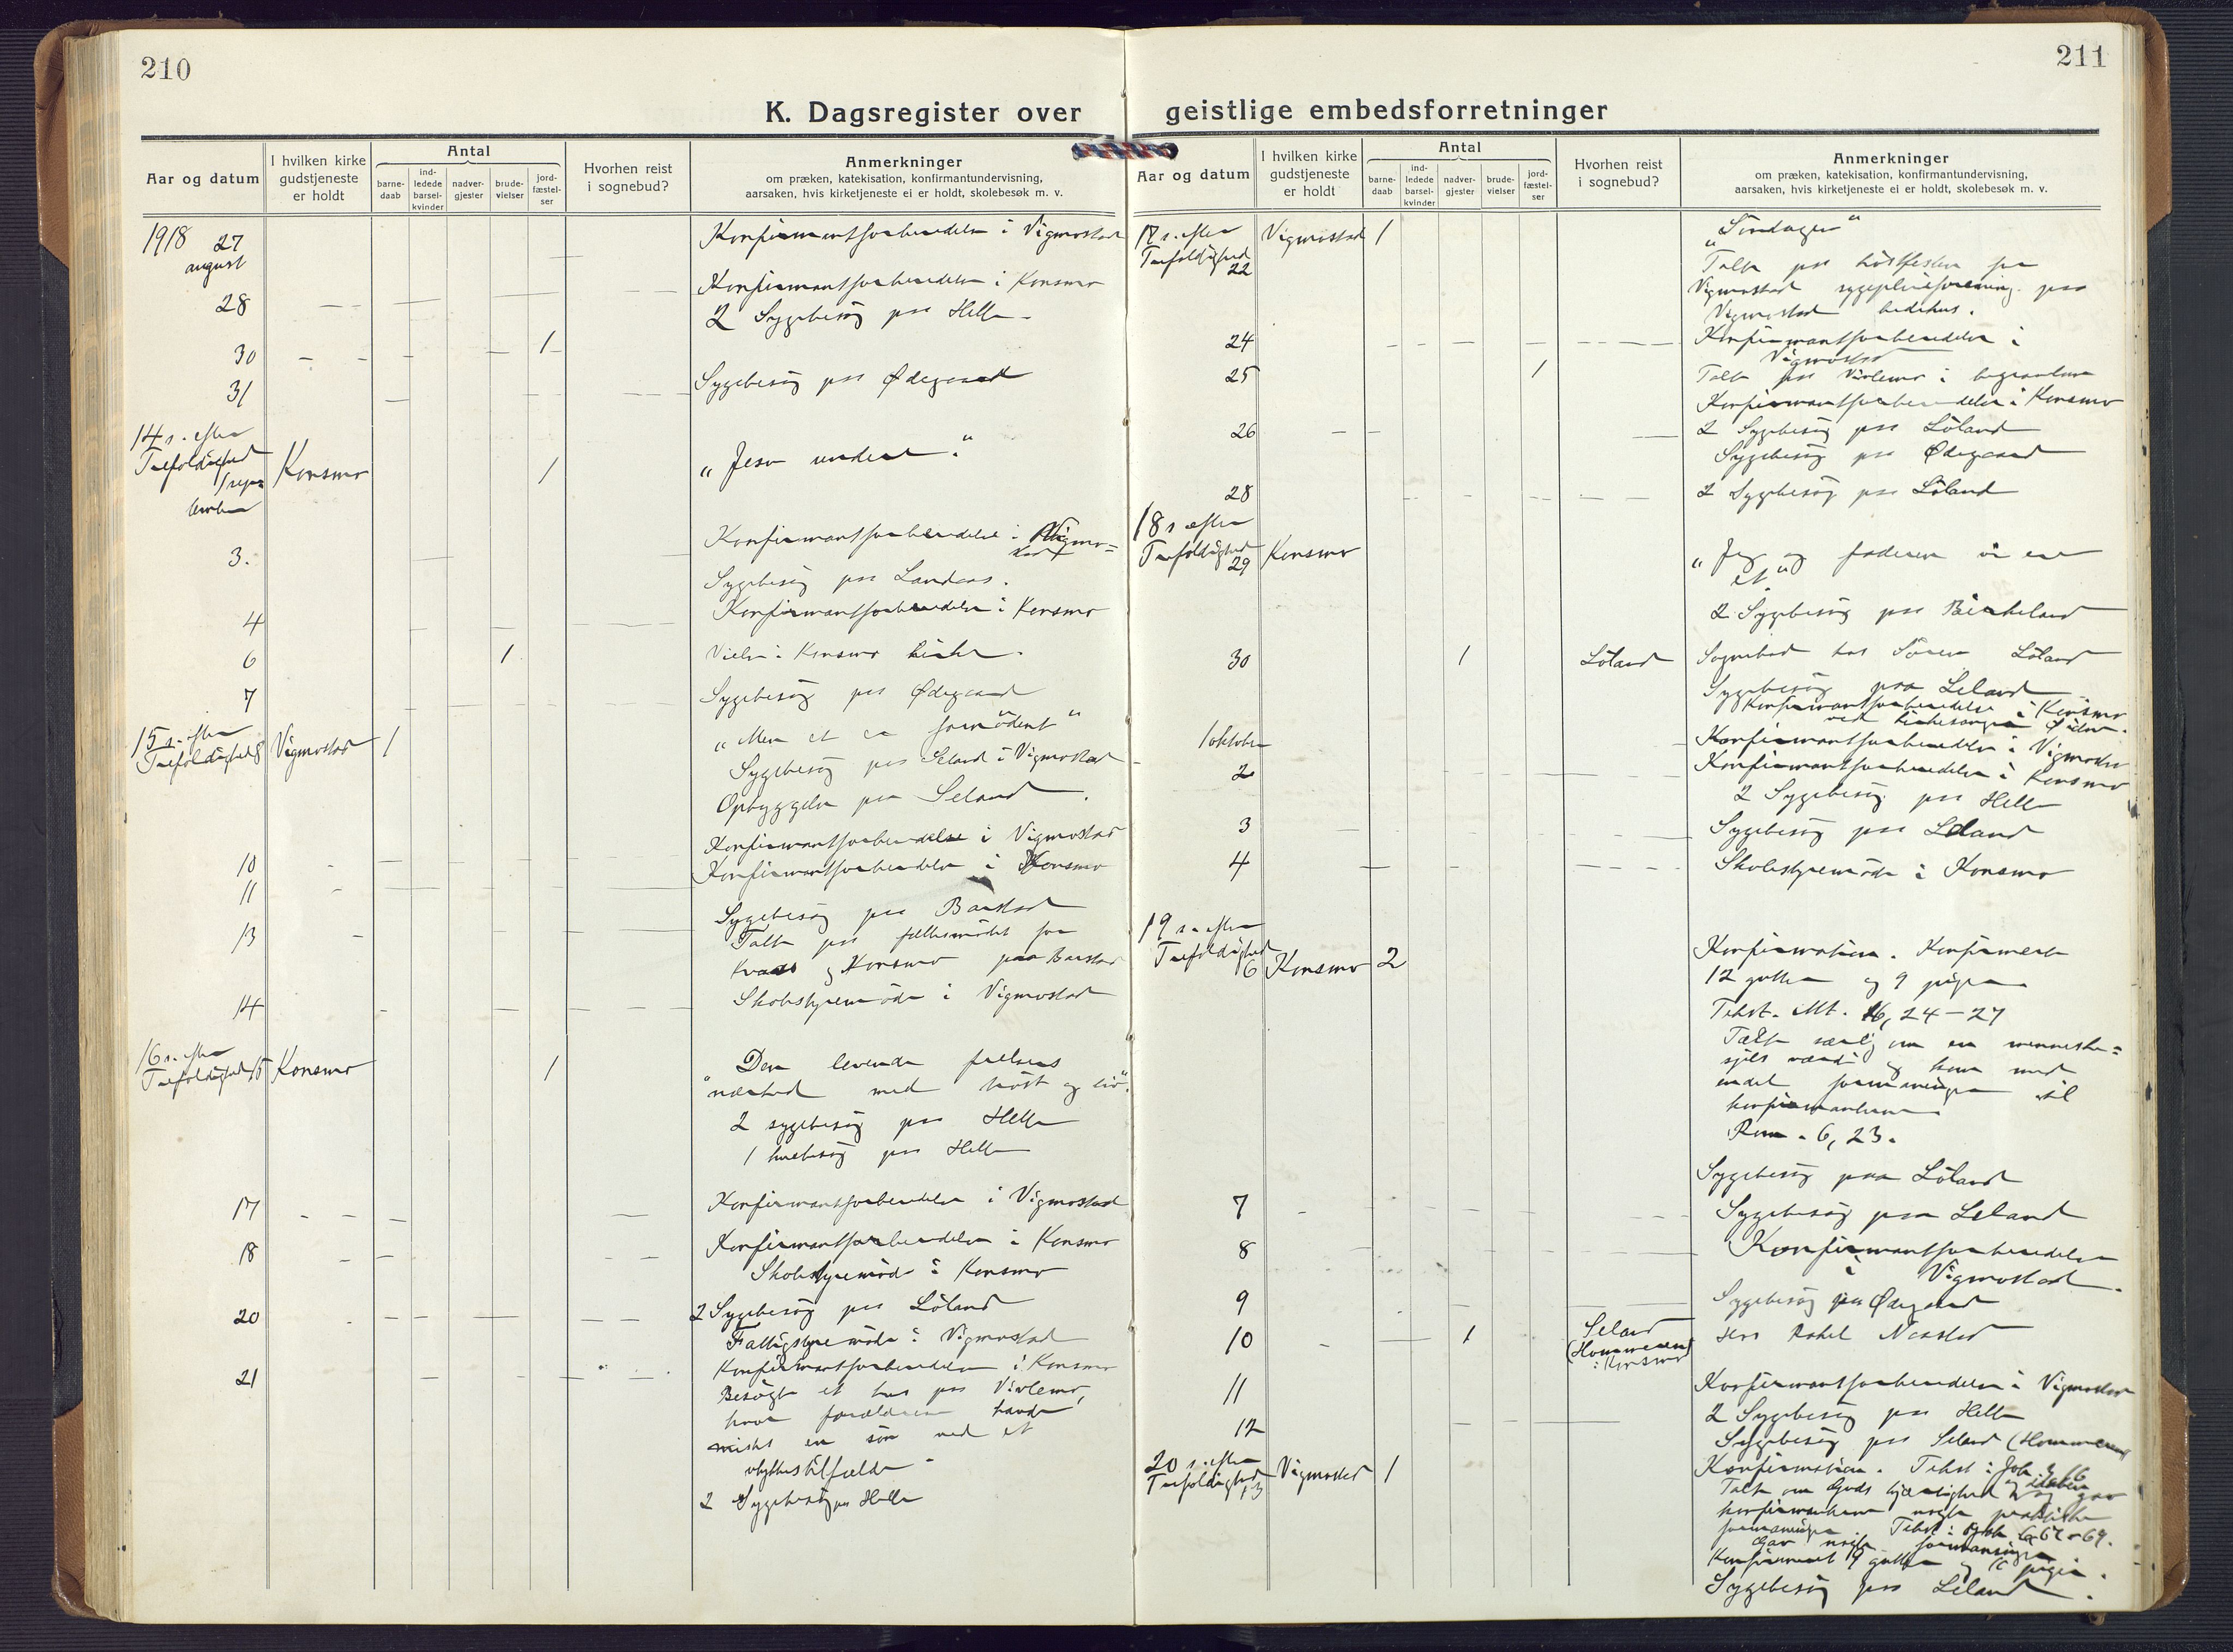 210
K. Dagsregister over
Aar og datum
I hvilken kirke
gudstjeneste
er holdt
Antal
barne-
daab
ind-
ledede
barsel-
kvinder
nadver-
gjester
brude-
vielser
jord-
fæstel-
ser
Hvorhen reist
i sognebud?
Anmerkninger
om præken, katekisation, konfirmantundervisning,
aarsaken, hvis kirketjeneste ei er holdt, skolebesøk m. v.
1918 27
august
Konfirmantforberedelse i Vigmostad
28
Konfirmantforberedelse i Konsmo
2 Sygebesög paa Helle
30 1
31
Sygebesög paa Ødegaard
14 s. efter
Trefoldighed
1 sep
tember
Konsmo 1
„Jesu venderi“
3.
Konfirmantforberedelse i Vigmo=
stad
Sygebesög paa Landaas.
4
Konfirmantforberedelse i Konsmo
6 1
Vielse i Konsmo kirke.
7
Sygebesög paa Ødegaard
15 s. efter
Trefoldighed 8 Vigmostad 1
„Men et er fornödent“
Sygebesög paa Seland i Vigmostad
Opbyggelse paa Seland.
10
Konfirmantforberedelse i Vigmostad
11
Konfirmantforberedelse i Konsmo
13
Sygebesög paa Barstad
Talte paa fællesmötet for
Kvaas og Konsmo paa Barstad
14
Skolestyremöde i Vigmostad
16 s. efter
Trefoldighed 15 Konsmo 1
Den levende frelsers
"nærhed med tröst og liv".
2 sygebesög paa Helle
1 husbesög paa Helle
17
Konfirmantforberedelse i Vigmostad
18
Konfirmantforberedelse i Konsmo
Skolestyremöde i Konsmo
20
2 Sygebesög paa Löland
Fattigstyremöde i Vigmostad
21
Konfirmantforberedelse i Konsmo
Besögte et hus paa Virlemo,
hvor forældrene havde
mistet en sön ved et
ulykkestilfælde
2 Sygebesög paa Helle
211
geistlige embedsforretninger
Aar og datum
I hvilken kirke
gudstjeneste
er holdt
Antal
barne-
daab
ind-
ledede
barsel-
kvinder
nadver-
gjester
brude-
vielser
jord-
fæstel-
ser
Hvorhen reist
i sognebud?
Anmerkninger
om præken, katekisation, konfirmantundervisning,
aarsaken, hvis kirketjeneste ei er holdt, skolebesøk m. v.
17 s. efter
Trefoldighed
22
Vigmostad 1
„Söndagen“
Talte paa höstfesten for
Vigmostad sygepleieforening paa
Vigmostad bedehus.
24
Konfirmantforberedelse i
Vigmostad
25 1
Talte paa Virlemo i begravelse
Konfirmantforberedelse i Konsmo
26
2 Sygebesög paa Löland
Sygebesög paa Ødegaard
28
2 Sygebesög paa Löland
18 s. efter
Trefoldighed
29 Konsmo
„Jeg og faderen vi er
et“
2 Sygebesög paa Birkeland
30 1 Löland
Sognebud hos Sören Löland
Sygebesög paa Leland
Konfirmantforberedelse i Konsmo
ved kirkesanger
1 oktober
Konfirmantforberedelse i Vigmostad
2
Konfirmantforberedelse i Konsmo
2 Sygebesög paa Helle
3
Sygebesög paa Leland
4
Skolestyremöde i Konsmo
19 s. efter
Trefoldighed
6 Konsmo 2
Konfirmation. Konfirmerte
12 gutter og 9 piger
Tekst. Mt. 16, 24-27
Talte særlig om en menneske=
sjels værdi og kom med
endel formaninger til
konfirmanterne
Rom. 6, 23.
Sygebesög paa Löland
7
Sygebesög paa Leland
8
Konfirmantforberedelse
i Vigmostad.
9
Sygebesög paa Ødegaard
10 1 Seland
(Hommeren)
i Konsmo
Hos Rakel Naastad
11
Konfirmantforberedelse i Vigmostad
2 Sygebesög paa Helle
12
Sygebesög paa Seland (Hommeren)
20 s. efter
Trefoldighed
13
Vigmostad 1
Konfirmation. Tekst: Joh 3, 16
Talte om Guds kjærlighed og gav
konfirmanterne nogle praktiske
formaninger. Tekst: Joh 6, 67-69.
Gav nogle formaninger
Konfirmeret 9 gutter og piger.
Sygebesög paa Leland.